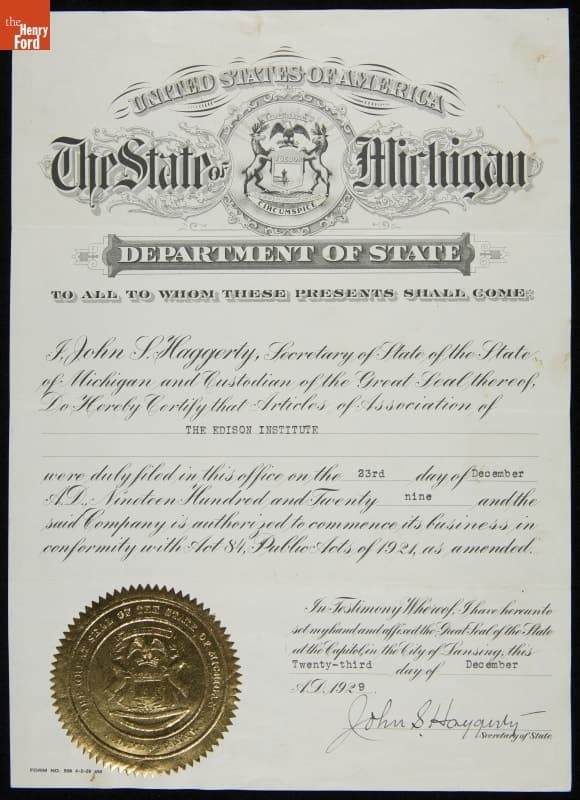 the
Henry
Ford
UNITED STATES OF AMERICA
The State of Michigan
TUEBOR
CIRCUMSPICE
DEPARTMENT OF STATE
TO ALL TO WHOM THESE PRESENTS SHALL COME:
I, John S. Haggerty, Secretary of State of the State
of Michigan and Custodian of the Great Seal thereof,
Do Hereby Certify that Articles of Association of
THE EDISON INSTITUTE
were duly filed in this office on the 23rd day of December
A.D., Nineteen Hundred and Twenty nine and the
said Company is authorized to commence its business in
conformity with Act 84, Public Acts of 1921, as amended.
In Testimony Whereof, I have hereunto
set my hand and affixed the Great Seal of the State
at the Capitol, in the City of Lansing, this
Twenty-third day of December
A.D. 1929
John S. Haggerty
Secretary of State
THE GREAT SEAL OF THE STATE OF MICHIGAN
FORM NO.